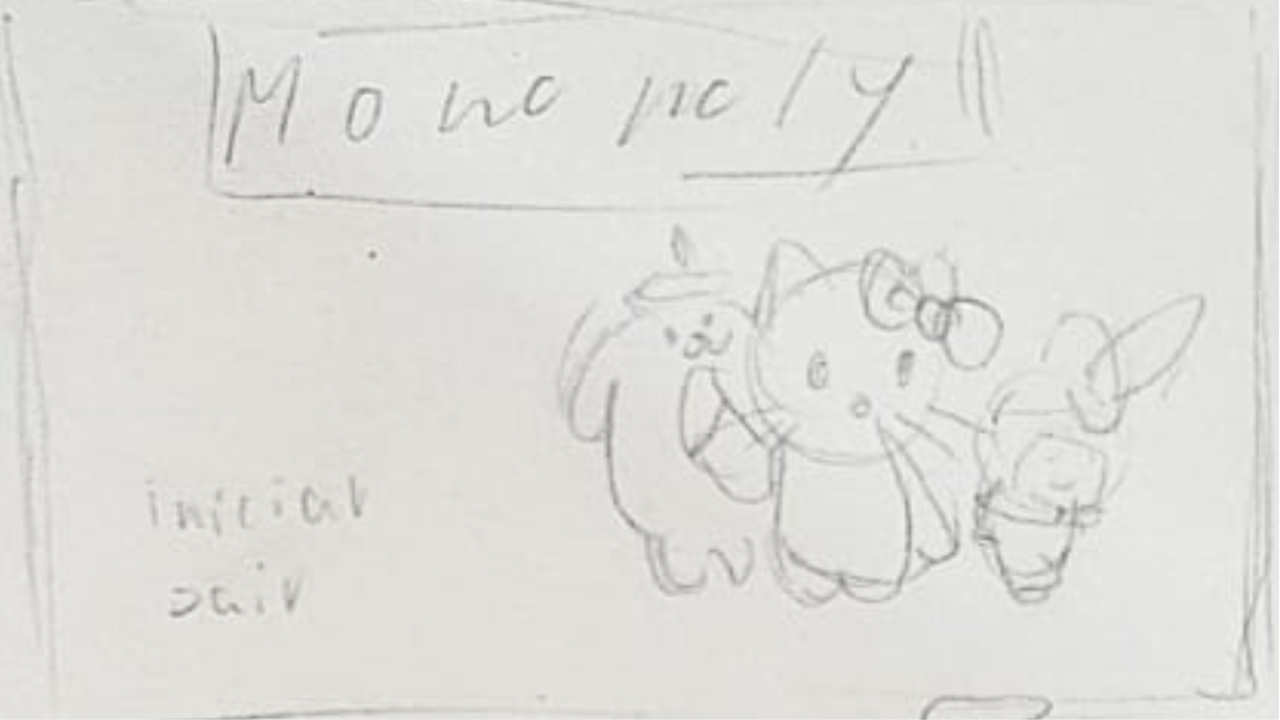 Monopoly
iniciar
sair